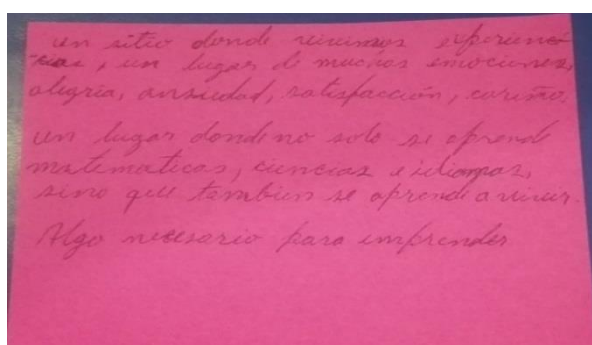 un sitio donde vivimos experien
cias, un lugar de muchas emociones,
alegria, ansiedad, satisfacción, cariño,
un lugar donde no solo se aprende
matematicas, ciencias e idiomas,
sino que tambien se aprende a vivir.
Algo necesario para emprender